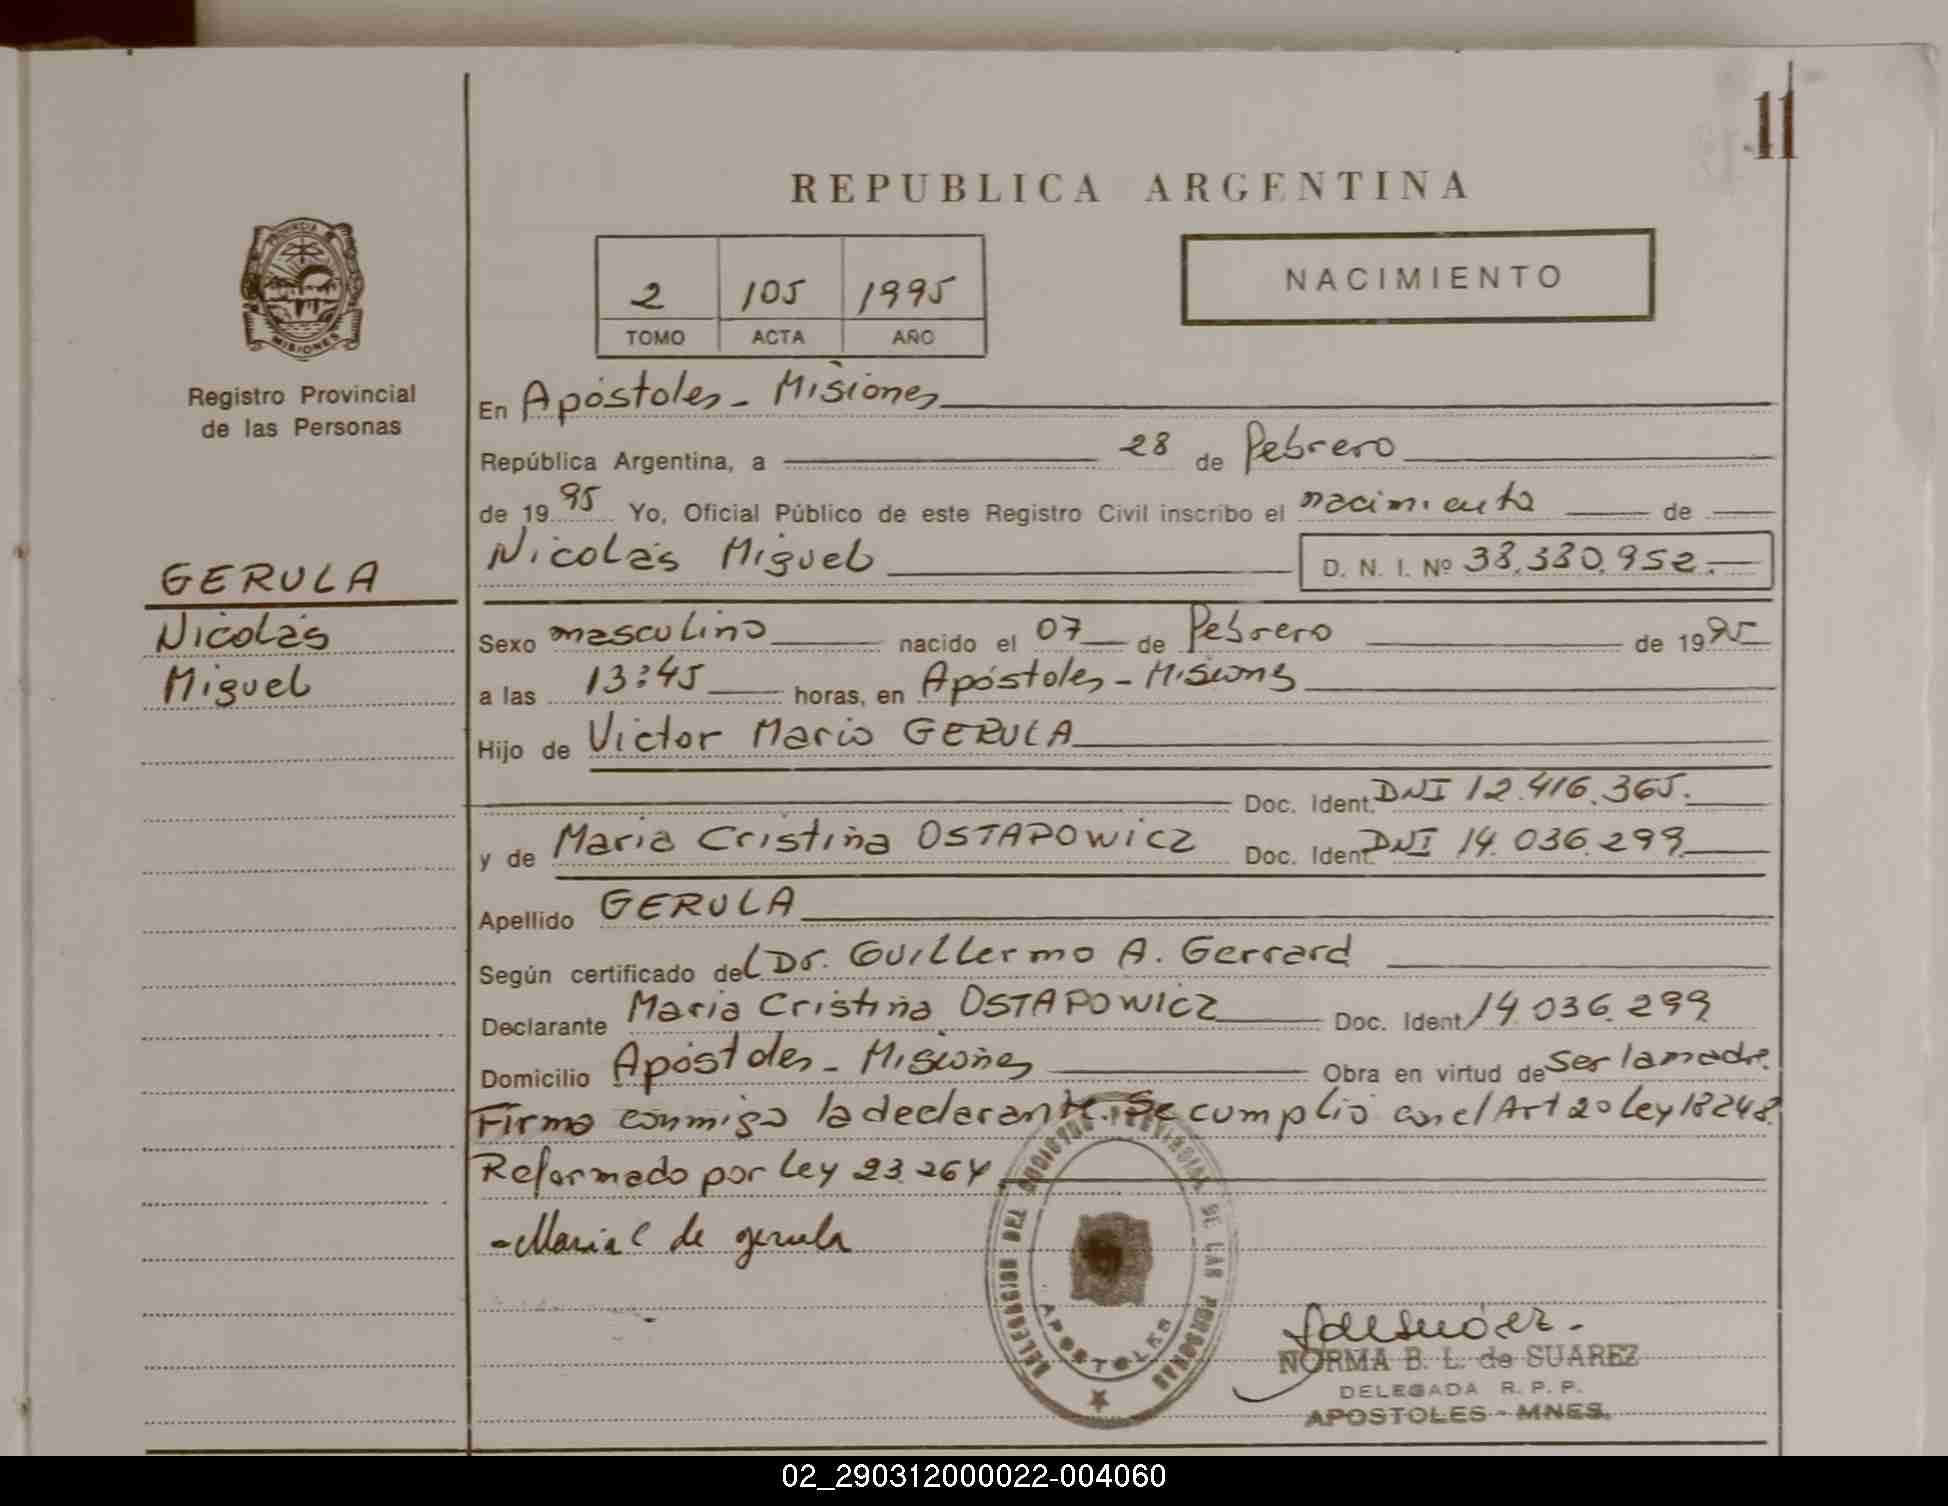 11
REPUBLICA ARGENTINA
PROVINCIA DE
MISIONES
Registro Provincial
de las Personas
2 105 1995
TOMO ACTA AÑO
NACIMIENTO
En Apóstoles - Misiones
República Argentina, a 28 de Febrero
de 1995 Yo, Oficial Público de este Registro Civil inscribo el nacimiento de
Nicolás Miguel D. N. I. Nº 38.380.952.-
GERULA
Nicolás
Miguel
Sexo masculino nacido el 07 de Febrero de 1995
a las 13:45 horas, en Apóstoles - Misiones
Hijo de Victor Mario GERULA
Doc. Ident. DNI 12.416.365.
y de Maria Cristina OSTAPOWICZ Doc. Ident. DNI 14.036.299.
Apellido GERULA
Según certificado del Dr. Guillermo A. Gerrard
Declarante Maria Cristina OSTAPOWICZ Doc. Ident. 14.036.299
Domicilio Apóstoles - Misiones Obra en virtud de ser la madre.
Firma conmigo la declarante. Se cumplió con el Art 20 Ley 18248.
Reformado por Ley 23.264
- Maria C de gerula
DELEGACION DEL REGISTRO PROVINCIAL DE LAS PERSONAS
APOSTOLES
NORMA B. L. de SUAREZ
DELEGADA R. P. P.
APOSTOLES - MNES.
02_290312000022-004060